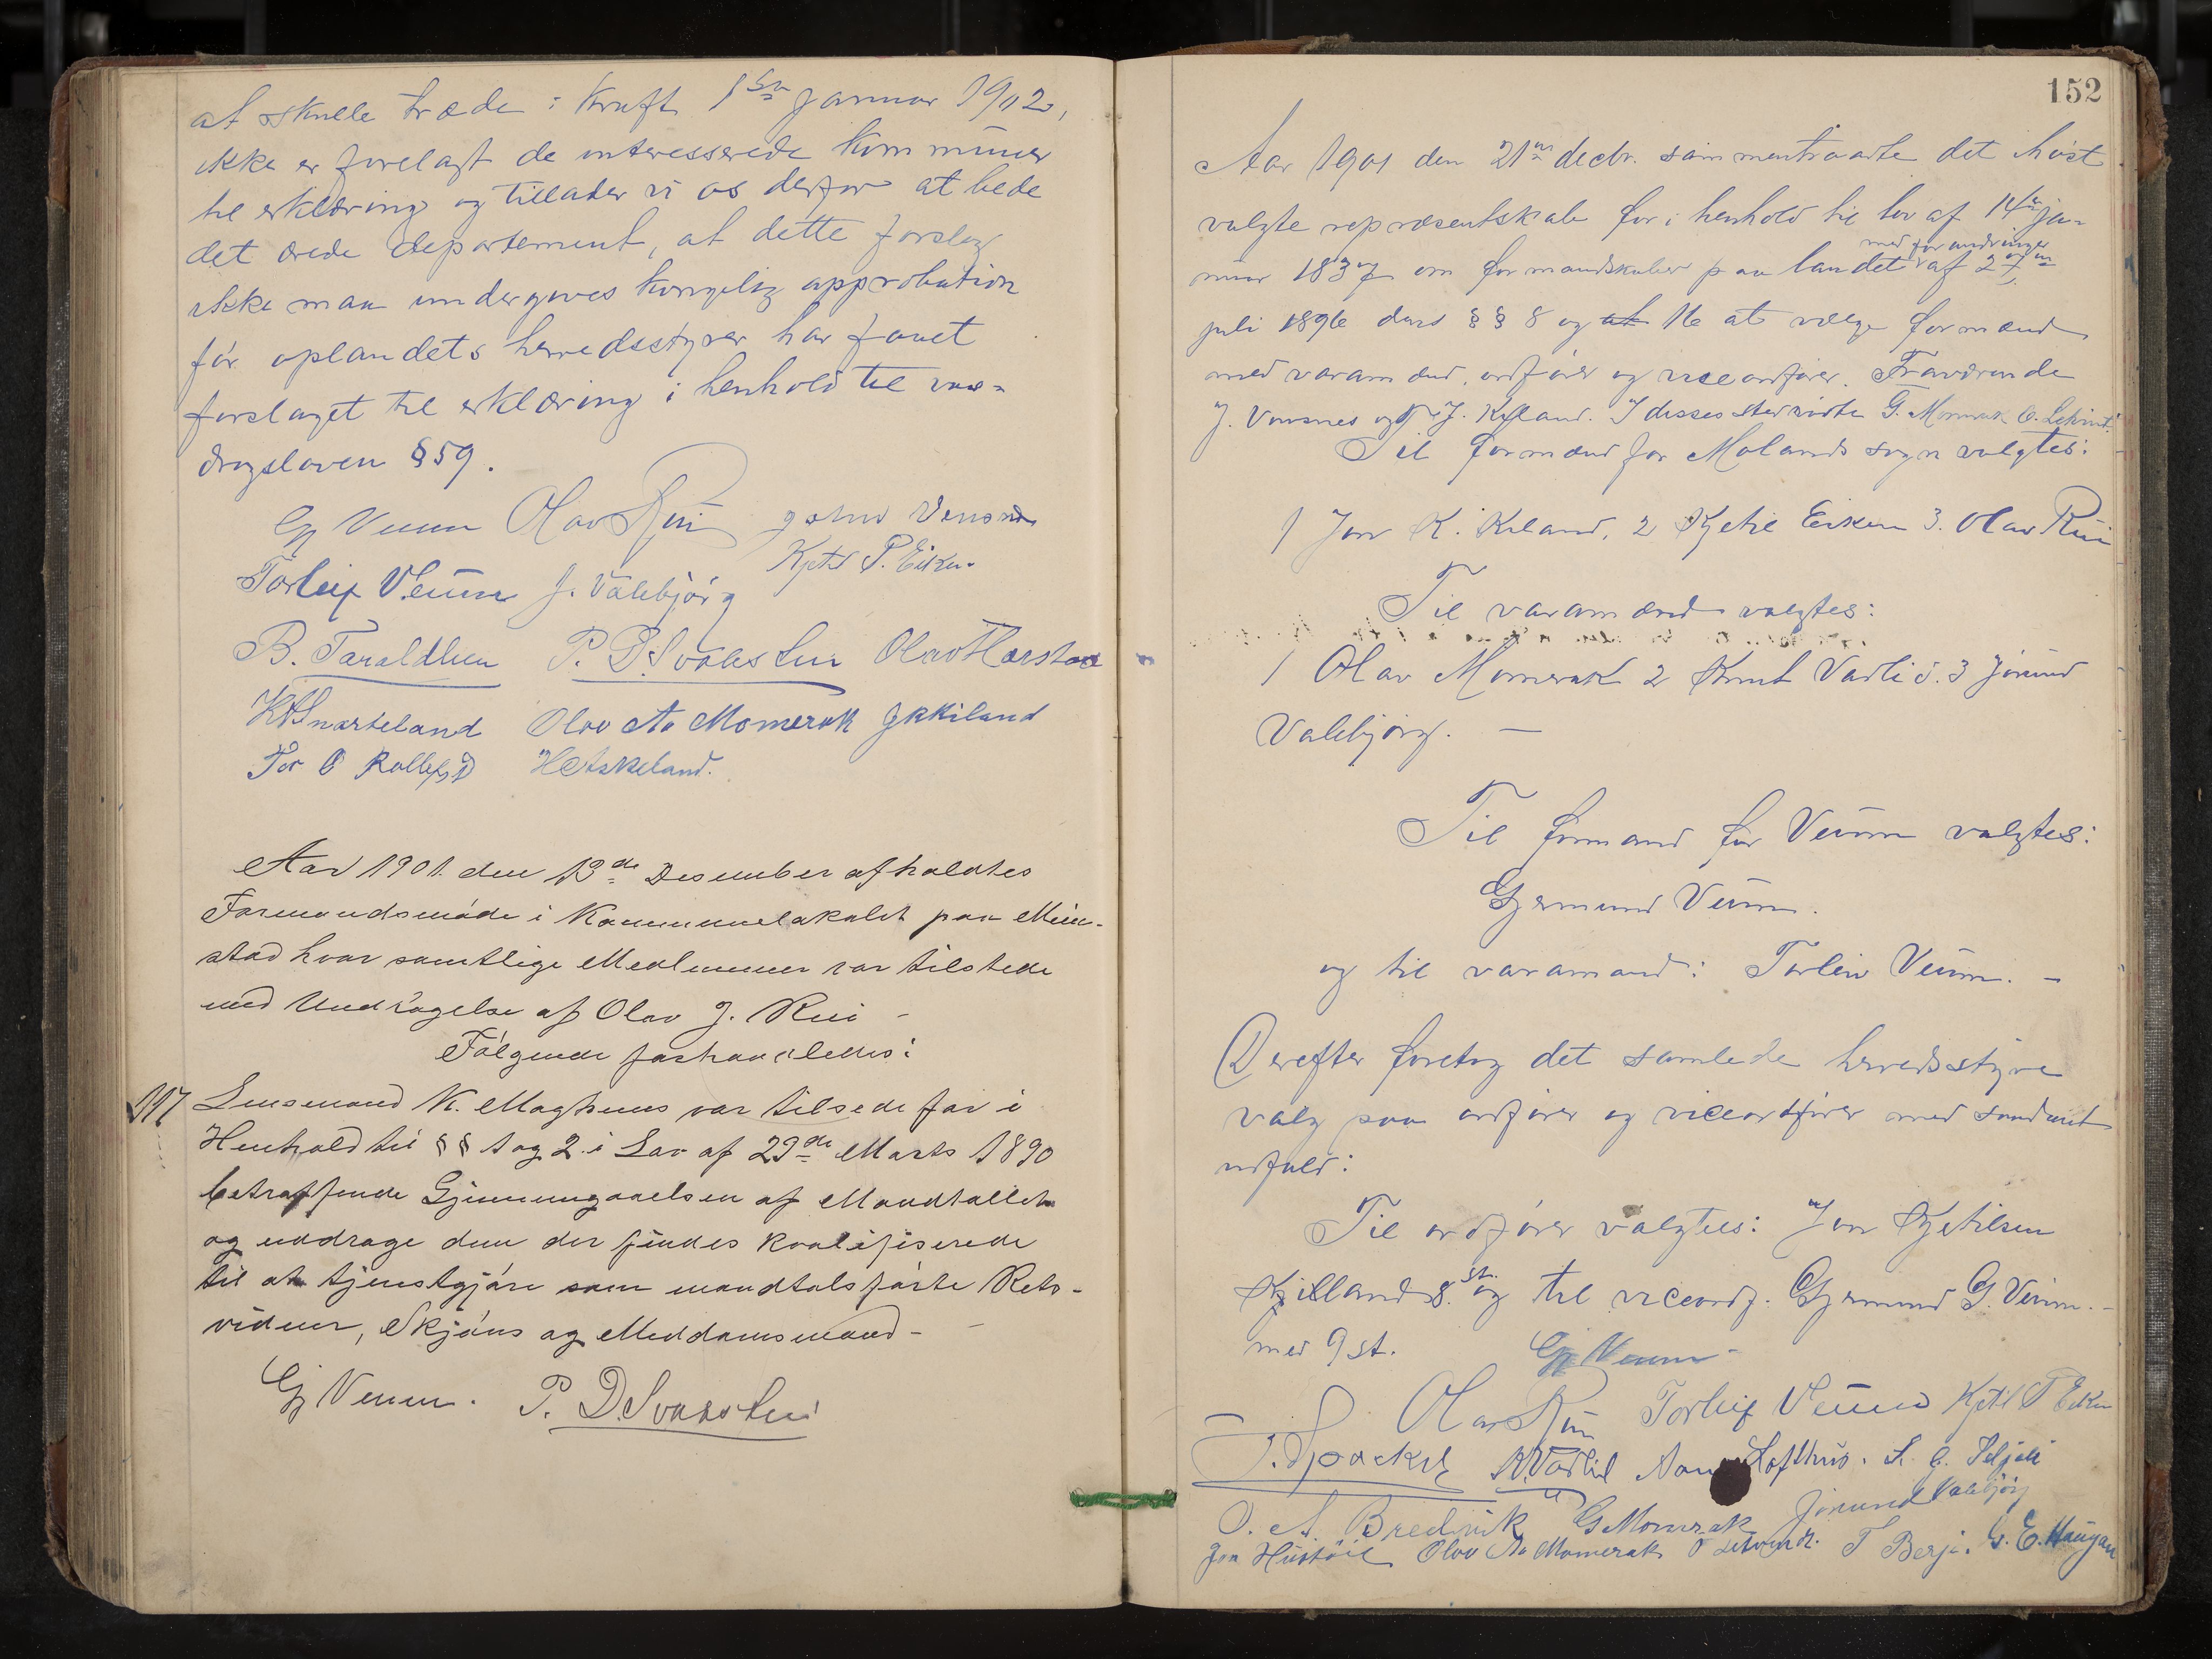 at skulle træde i kraft 1ste januar 1902,
ikke er forelagt de interesserede kommuner
til erklæring og tillader vi os derfor at bede
det ærede departement, at dette forslag
ikke maa undergives kongelig approbation
før oplandets herredsstyrer har faaet
forslaget til erklæring i henhold til vas-
dragsloven § 59.
Gj Veum Olav Rui John Vensnes
Torleif Veum J. Valebjørg Kjetil T. Eiken
B. Taraldlien P. D. Svalastui Olav Harstad
K H Snarteland Olav Aa Momrak J K Kiland
Tor O Rollefsd H Askeland.
Aar 1901 den 13de Desember afholdtes
Formandsmøde i Kommunelokalet paa Mein-
stad hvor samtlige Medlemmer var tilstede
med Undtagelse af Olav J. Rui -
Følgende forhandledes:
117 Lensmand K. Moghuus var tilsede for i
Henhold til §§ 1 og 2 i Lov af 29de Marts 1890
betræffende Gjennemgaaelsen af Mandtallet
og uddrage dem der findes kvalifiserede
til at tjenstgjøre som mandtalsførte Rets-
vidner, Skjøns og Meddomsmænd -
Gj Veum. P. D. Svalastui
152
Aar 1901 den 21de decbr. sammentraadte det høist
valgte repræsentskab for i henhold til lov af 14de ja-
med forandringer
nuar 1837 om formandskaber paa landet af 27de
juli 1896 dens §§ 8 og at 16 at vælge formænd
med varamænd, ordfører og viceordfører. Fraværende
J. Vensnes og J. Kiland. I disses sted mødte G. Momrak O.
Til formænd for Molands sogn valgtes:
1 Jon K. Kiland, 2 Kjetil Eiken 3. Olav Rui
Til varamænd valgtes:
1 Olav Momrak 2 Knut Vadlid. 3 Jørund
Valebjørg. —
Til formand for Veum valgtes:
Gjermund Veum.
og til varamand: Torleiv Veum. —
Derefter foretog det samlede herredsstyre
valg paa ordfører og viceordfører med saadant
udfald:
Til ordfører valgtes: Jon Kjetilsen
Kjilland 8 st. og til viceordf. Gjermund G. Veum. -
med 9 st. Gj Veum -
Olav Rui Torleif Veum Kjetil T Eiken
K. Vadlid Lofthus.
O. A. Bredvik G Momrak Jørund Valebjørg
Jon Hustøil Olav Aa Momrak T Berje. G. E. Haugan